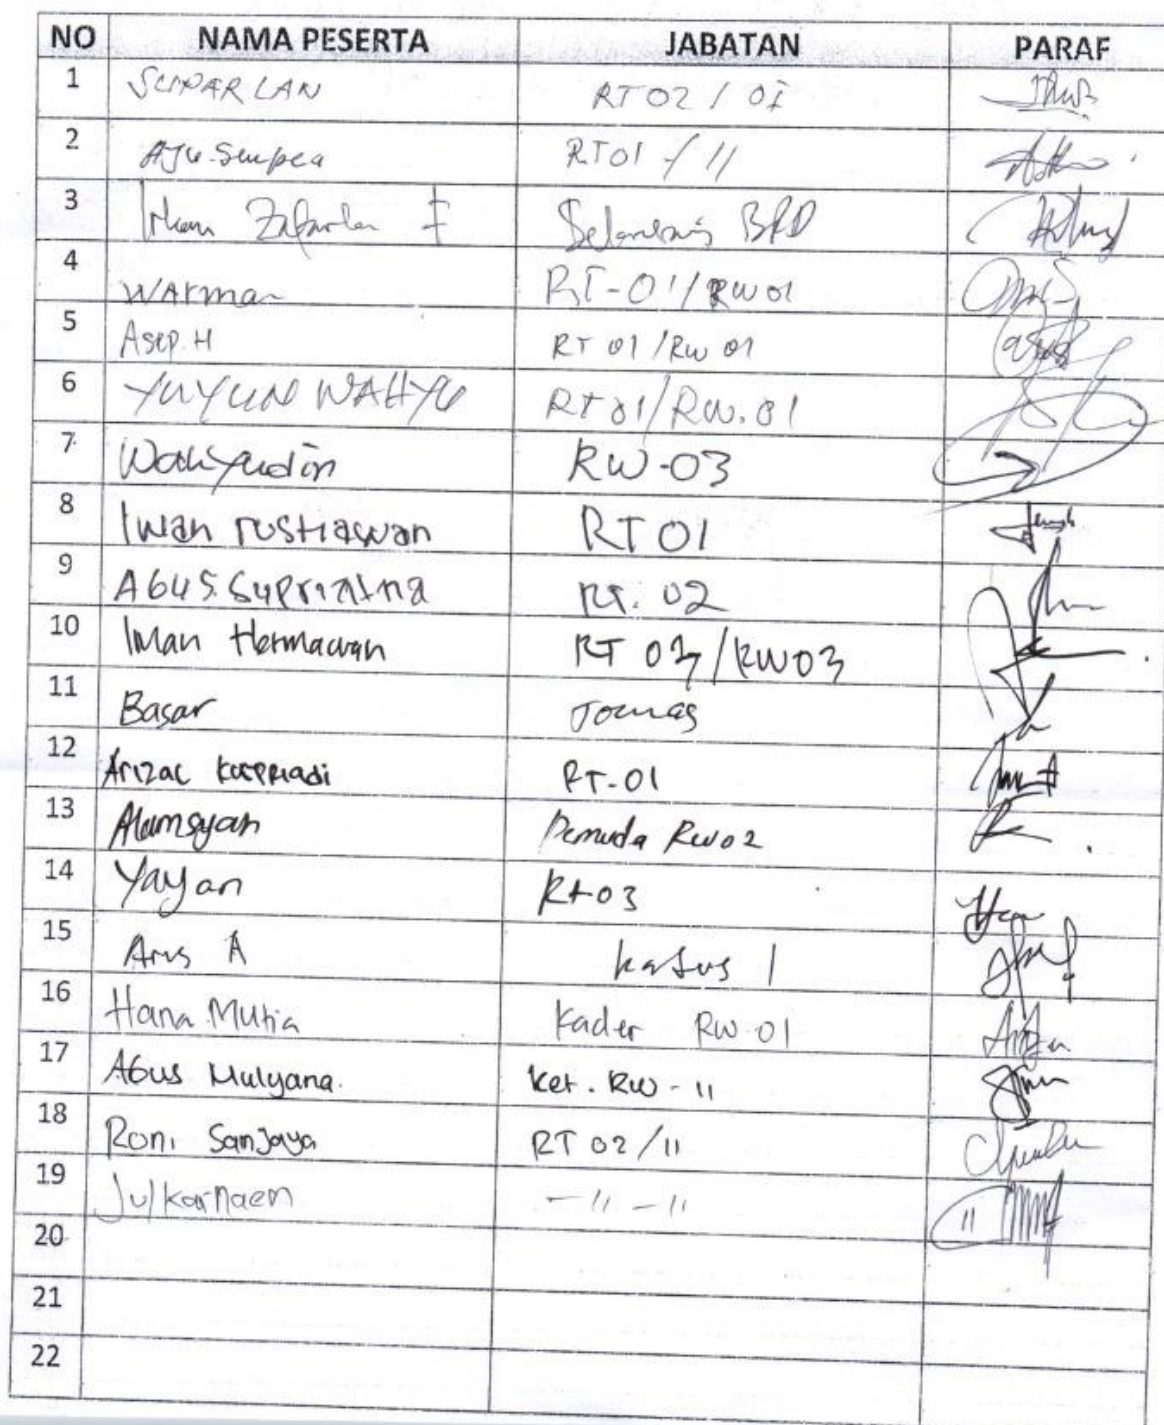 NO NAMA PESERTA JABATAN PARAF
1 SUPARLAN RT 02 / 01
2 RT01 / 11
3 BPD
4 Warman RT-01/RW01
5 Asep. H RT 01 /RW 01
6 YUYUN WAHYU RT 01/RW.01
7 Wahyudin RW-03
8 Iwan rustiawan RT 01
9 Agus. Supriatna RT. 02
10 Iman Hermawan RT 03/RW03
11 Basar Tomas
12 Arizal RT-01
13 Alamsyah Pemuda RW02
14 Yayan Rt 03
15 Arus A kasus 1
16 Hana Mutia Kader RW 01
17 Agus Mulyana. Ket. RW - 11
18 Roni Sanjaya RT 02/11
19 Julkarnaen - 11 - 11
20
21
22